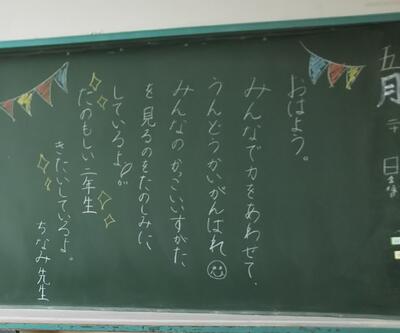 五月
日
おはよう。
みんなで力をあわせて、
うんどうかいがんばれ
みんなのかっこいいすがた
を見るのをたのしみに
しているよ
たのもしい二年生
きたいしているよ。
ちなみ先生